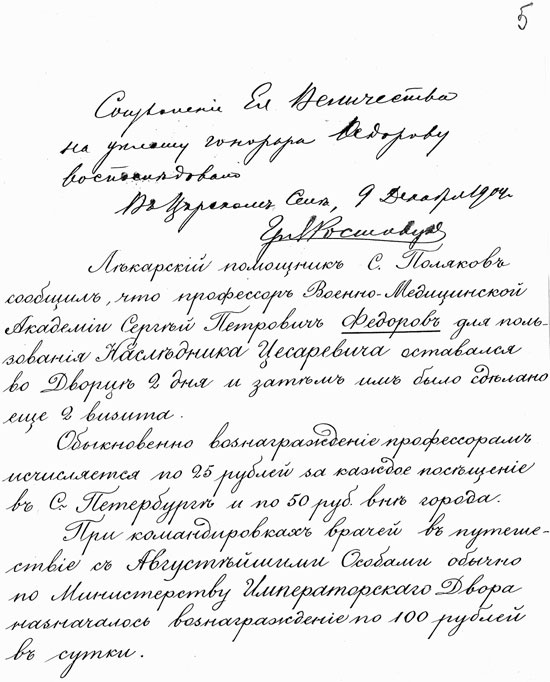 5
Соизволеніе Ея Величества
на уплату гонорара Федорову
воспослѣдовало
Въ Царскомъ Селѣ, 9 Декабря 1904 г.
Гр. Ростовцев
Лѣкарскій помощникъ С. Поляковъ
сообщилъ, что профессоръ Военно-Медицинской
Академіи Сергѣй Петровичъ Федоровъ для поль-
зованія Наслѣдника Цесаревича оставался
во Дворцѣ 2 дня и затѣмъ имъ было сдѣлано
еще 2 визита.
Обыкновенно вознагражденіе профессорамъ
исчисляется по 25 рублей за каждое посѣщеніе
въ С. Петербургѣ и по 50 руб. внѣ города.
При командировкахъ врачей въ путеше-
ствіе съ Августѣйшими Особами обычно
по Министерству Императорскаго Двора
назначалось вознагражденіе по 100 рублей
въ сутки.